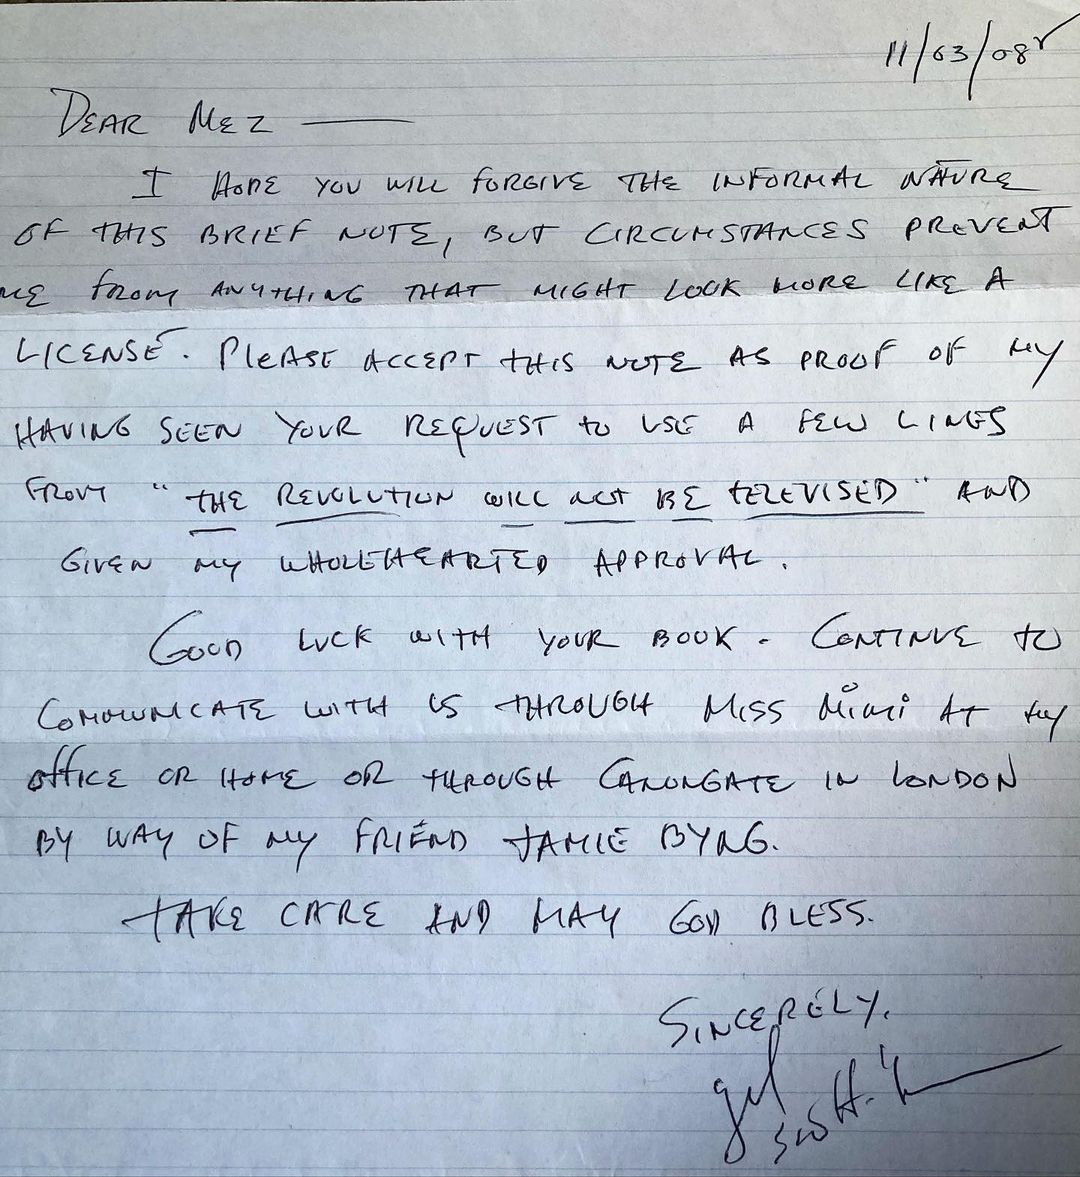 11/03/08
DEAR MEZ —
I HOPE YOU WILL FORGIVE THE INFORMAL NATURE
OF THIS BRIEF NOTE, BUT CIRCUMSTANCES PREVENT
ME FROM ANYTHING THAT MIGHT LOOK MORE LIKE A
LICENSE. PLEASE ACCEPT THIS NOTE AS PROOF OF MY
HAVING SEEN YOUR REQUEST TO USE A FEW LINES
FROM "THE REVOLUTION WILL NOT BE TELEVISED" AND
GIVEN MY WHOLEHEARTED APPROVAL.
GOOD LUCK WITH YOUR BOOK. CONTINUE TO
COMMUNICATE WITH US THROUGH MISS MIMI AT MY
OFFICE OR HOME OR THROUGH CANONGATE IN LONDON
BY WAY OF MY FRIEND JAMIE BYNG.
TAKE CARE AND MAY GOD BLESS.
SINCERELY,
gil
scott-h